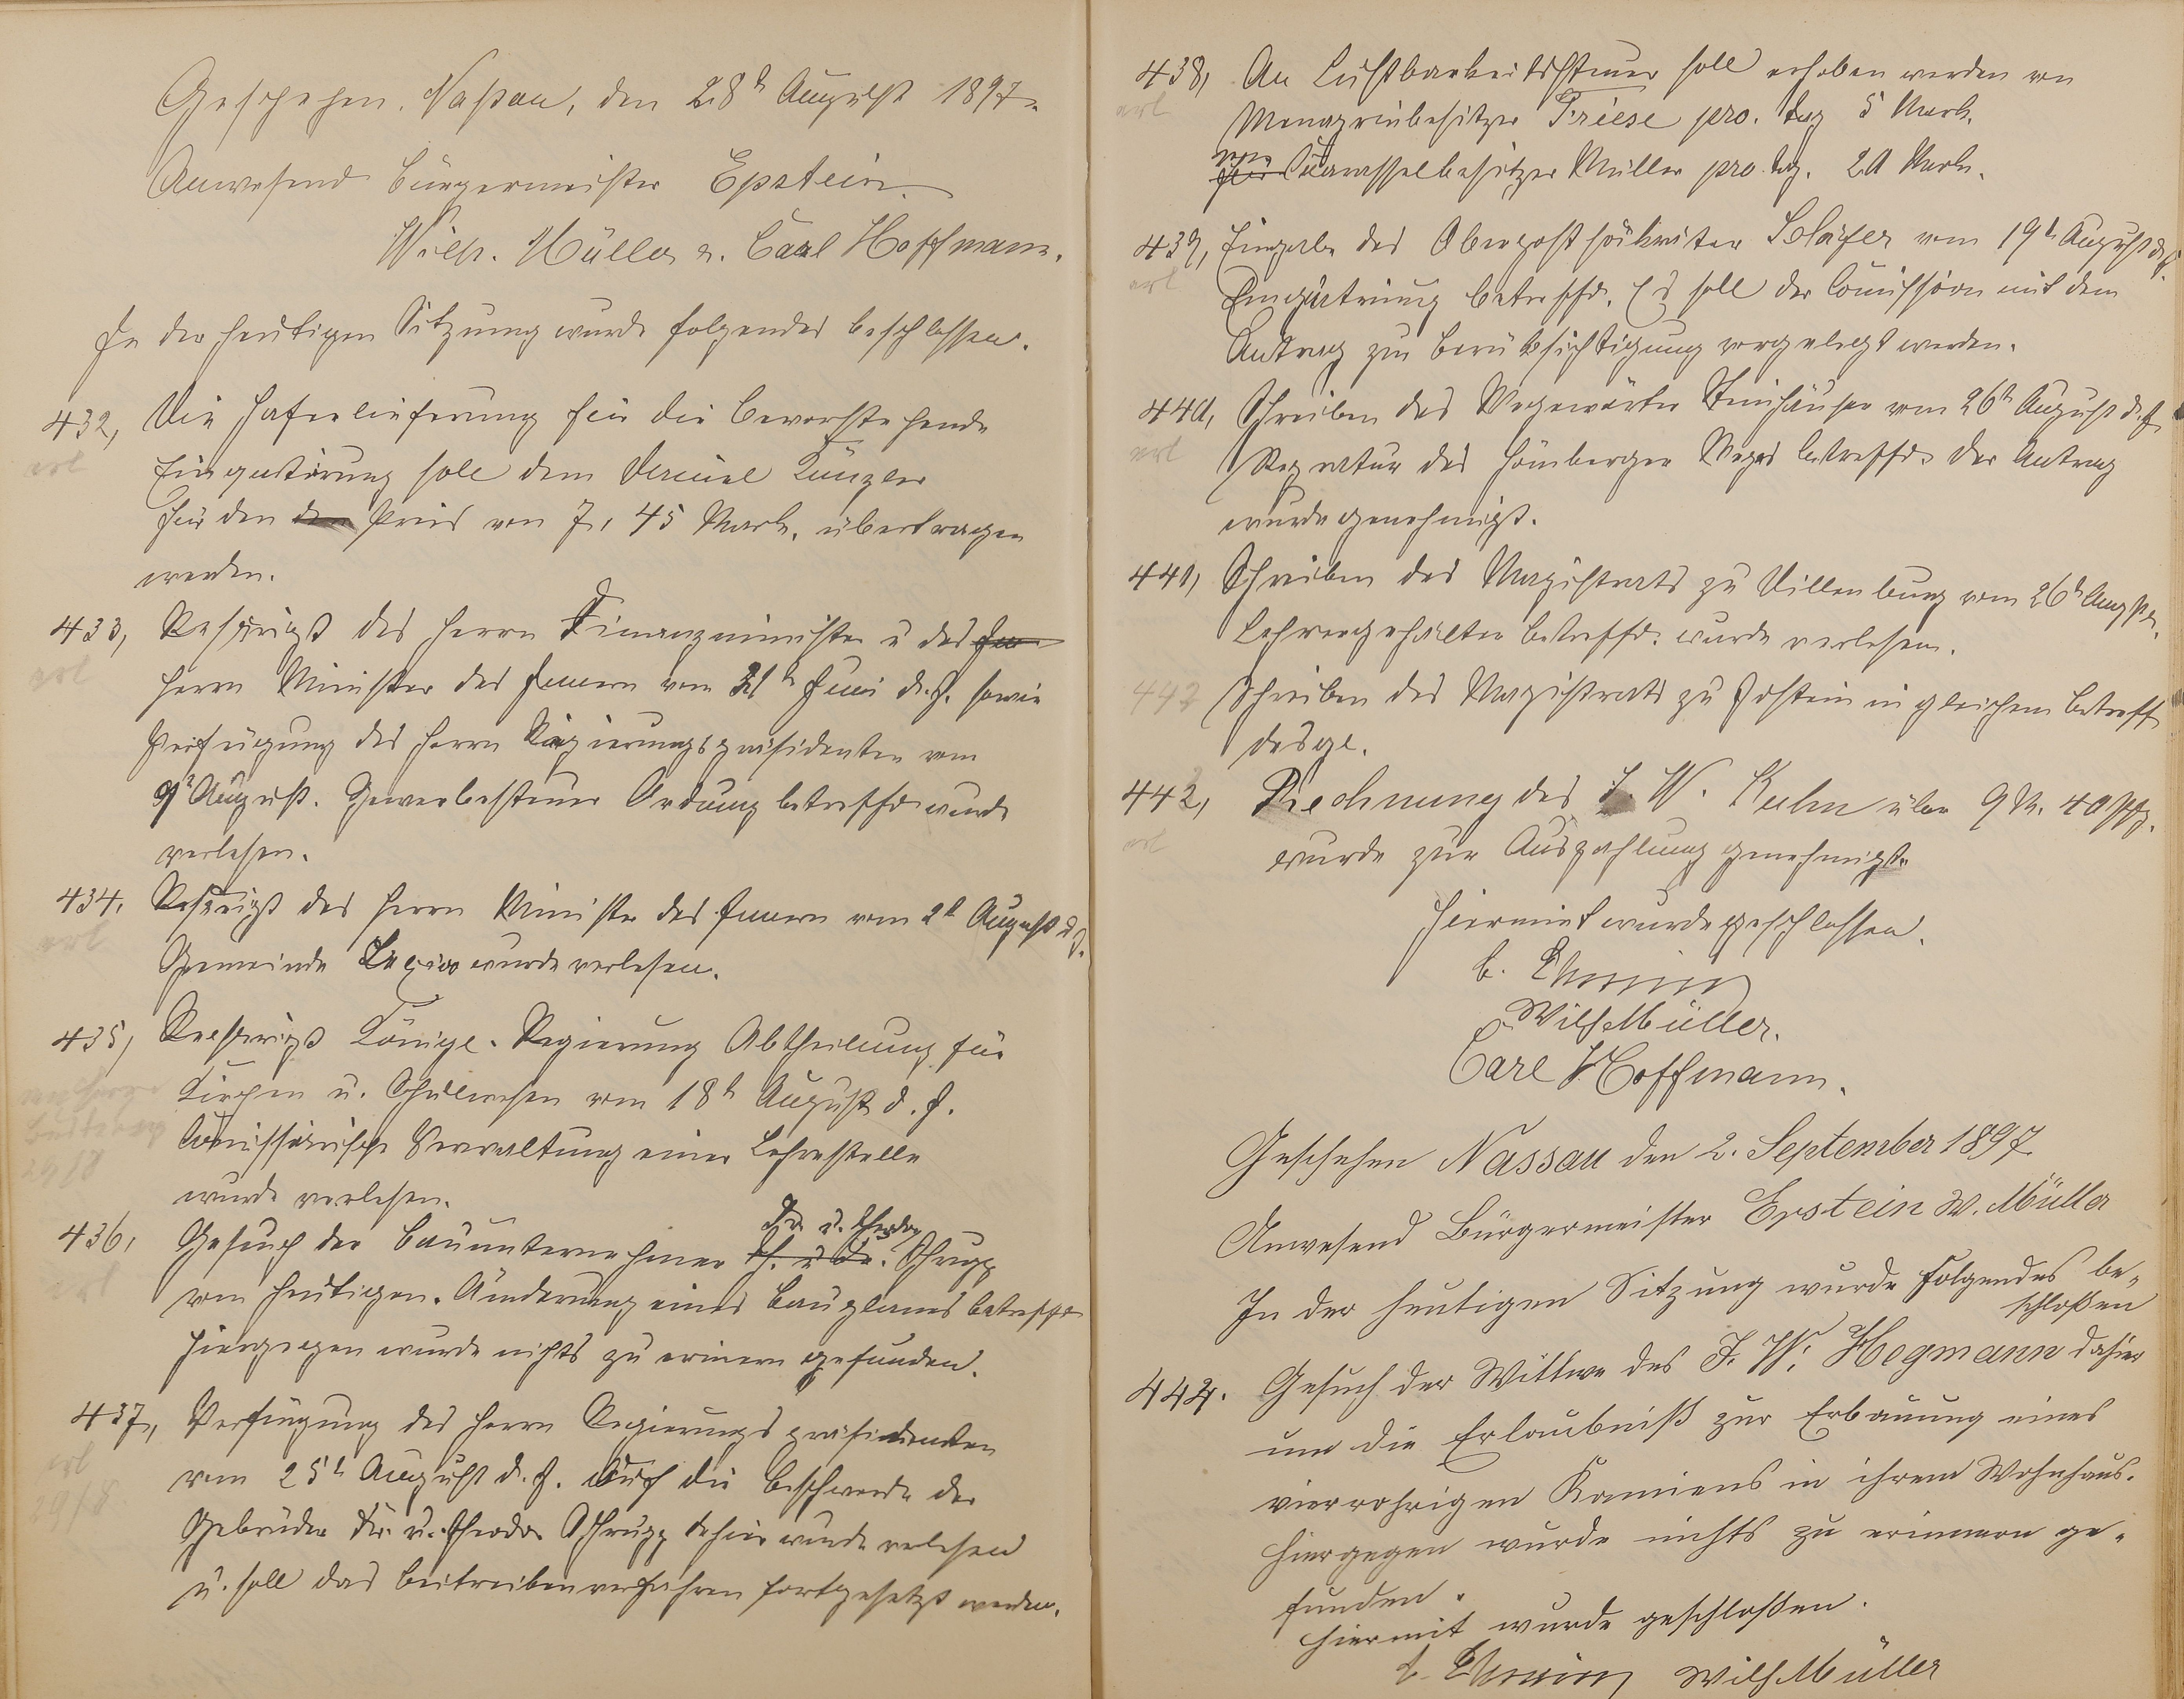 Geschehen. Naßau, den 28t August 1897.
Anwesend Bürgermeister Epstein
Wilh. Müller u. Carl Hoffmann.
In der heutigen Sitzung wurde folgendes beschlossen.
432, Die Haferlieferung für die bevorstehende
erl
Einquatirung soll dem Daniel Künzler
für den den Preis von 7, 45 Mark. übertragen
werden.
433, Reskript des Herrn Finanzminister u des
erl
Herrn Minister des Innern vom 21t Juni d. J. sowie
Verfügung des Herrn Regierungspräsidenten vom
9t August. Gewerbesteuer Ordnung betreffd wurde
verlesen.
434. Reskript des Herrn Minister des Innern vom 2t August d J.
erl
Gemeinde Lexicon wurde verlesen.
435, Reskript Königl. Regierung Abtheilung für
Kirchen u. Schulwesen vom 18t August d. J.
Comissarische Verwaltung einer Lehrestelle
29/8
wurde verlesen.
Fr. u. Theodor
436, Gesuch der Bauunternehmer Th. u Fr. Schrupp
erl
vom heutigen. Änderung eines Bauplanes betreffd
hiergegen wurde nichts zu erinern gefunden.
437, Verfügung des Herrn Regierungspräsidenten
erl
vom 25t August d. J. auf die Beschwerde der
29/8
Gebrüder Fr. u. Theodor Schrupp dahier wurde verlesen
u. soll das Beitreibenverfahren fortgesetzt werden.
438, An Lustbarkeitssteuer soll erhoben werden von
erl
Menageriebesitzer Friese pro. Tag 5 Mark.
vom
für Carusselbesitzer Müller pro Tag. 20 Mark.
439, Eingabe des Oberpostsekretär Schäfer vom 19t August d. J.
erl
Einquatirung betreffd. Es soll der Comission mit dem
Antrag zur Berüksichtigung vorgelegt werden.
440, Schreiben des Wegewärter Steinhäuser vom 26t August d. J.
erl
Repratur des Hömberger Weges betreffd der Antrag
wurde genehmigt.
441, Schreiben des Magistrats zu Dillenburg vom 26t August
Lehrergehälter betreffd. wurde verlesen.
442 Schreiben des Magistrats zu Idstein in gleichem Betreff
desgl.
443, Rechnung des J. W. Kuhn über 9 M. 40 Pfg.
erl
wurde zur Auszahlung genehmigt.
Hiermit wurde geschlossen.
Wilh Müller.
Carl Hoffmann.
Geschehen Nassau den 2. September 1897
Anwesend Bürgermeister Epstein W. Müller
In der heutigen Sitzung wurde folgendes be-
schloßen
444. Gesuch der Wittwe des J. W. Hegmann dahier
um die Erlaubniß zur Erbauung eines
vierrohrigen Kamiens in ihrem Wohnhaus.
Hiergegen wurde nichts zu erinnern ge-
funden.
Hiermit wurde geschloßen.
Wilh Müller